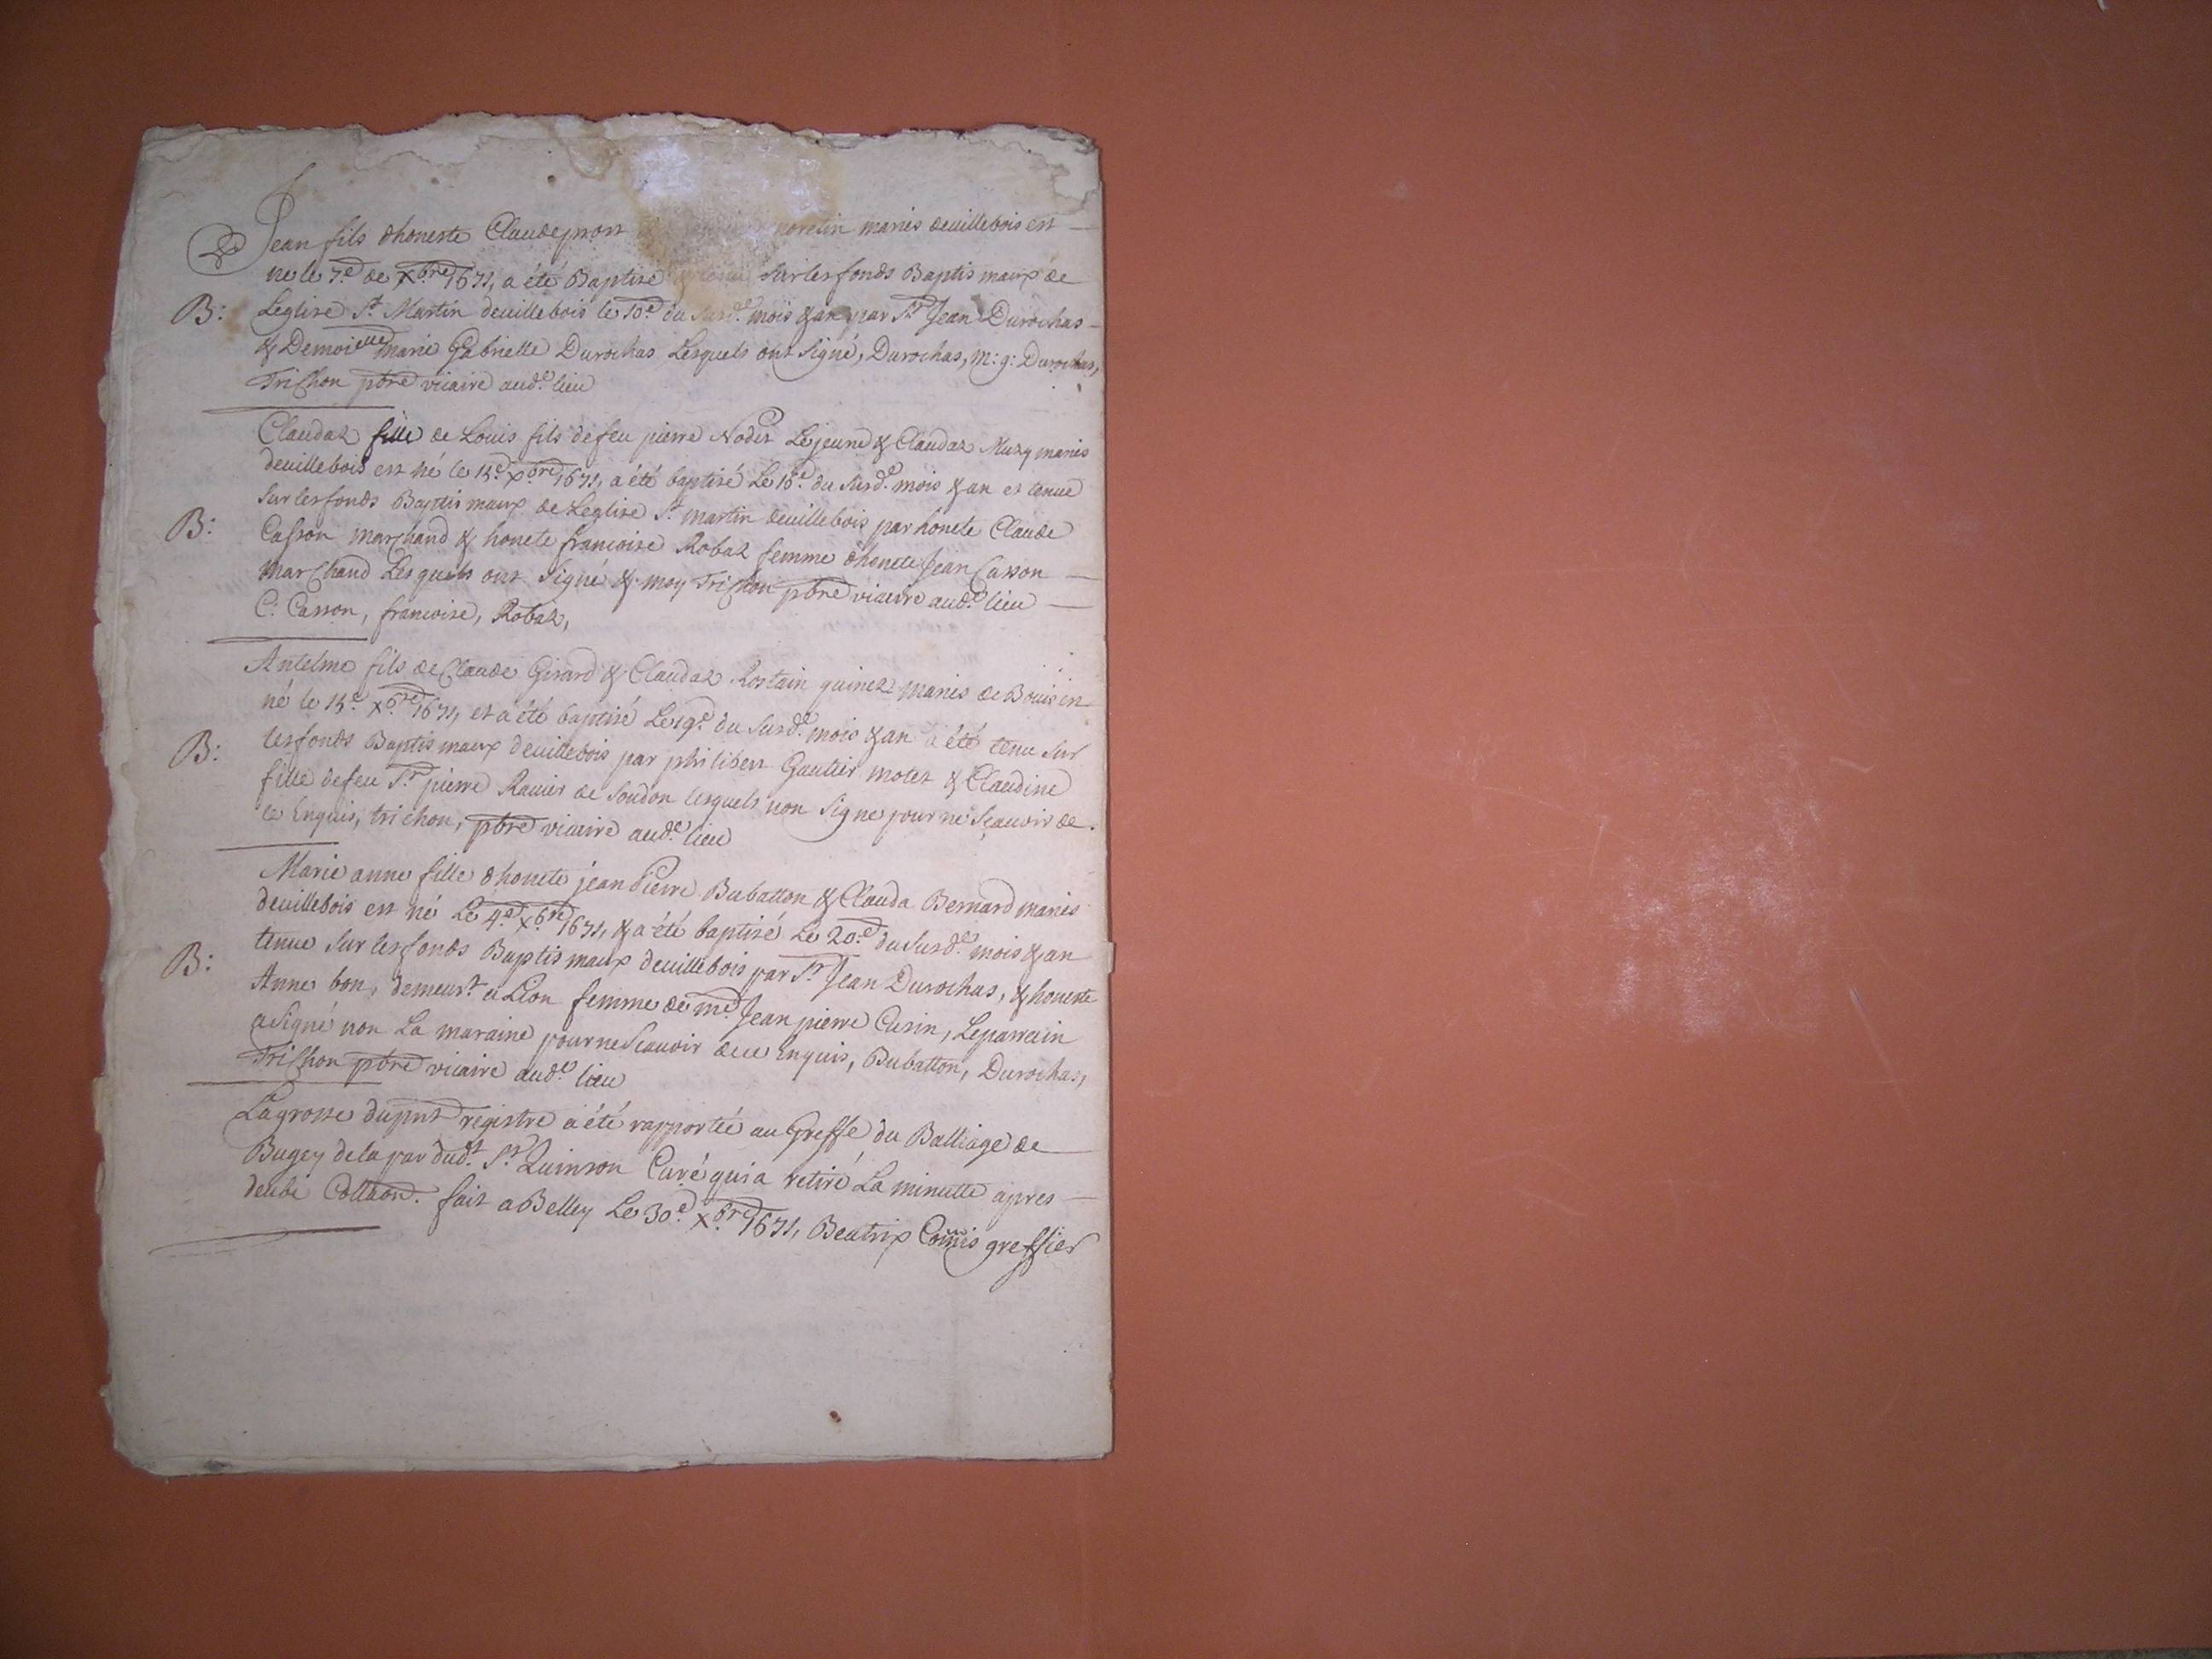 Jean fils dhoneste Claude prost maries deuillebois est
ne le 7.e de Xbre 1671, a été Baptisé sur les fonds Baptismaux de
B: Leglise St Martin deuillebois le 10.e du susd.e mois & an par Sr Jean Durochas
& Demoielle marie Gabrielle Durochas Lesquels ont signé, Durochas, m: g: Durochas,
Trichon pbre vicaire aud.e lieu
Claudaz fille de Louis fils de feu pierre Nodet Lejeune & Claudaz Muzy maries
deuillebois est né le 15.e xbre 1671, a été baptisé Le 16.e du susd.e mois & an et tenue
sur les fonds Baptismaux de Leglise St martin deuillebois par honete Claude
B: Casson marchand & honete francoise Robaz femme dhonete Jean Casson
marchand Lesquels ont signé & moy Trichon pbre vicaire aud.e lieu
C: Casson, francoise, Robaz,
Antelme fils de Claude Girard & Claudaz Rostain quinez maries de Bouis est
né le 15.e xbre 1671, et a été baptisé Le 19.e du susd.e mois & an a été tenu sur
B: les fonds Baptismaux deuillebois par philibert Gautier motet & Claudine
fille de feu Sr pierre Rauier de Soudon lesquels non signe pour ne scauoir de
ce Enquis, trichon, pbre vicaire aud.e lieu
Marie anne fille dhonete jean Pierre Bubatton & Clauda Bernard maries
deuillebois est né Le 4.e xbre 1671, & a été baptisé Le 20.e du susd.e mois & an
B: tenue sur les fonds Baptismaux deuillebois par Sr Jean Durochas, & honeste
Anne bon, demeur.t a Lion femme de me Jean pierre Cusin, Le parrain
a signé non La maraine pour ne scauoir de ce Enquis, Bubatton, Durochas,
Trichon pbre vicaire aud.e lieu
La grosse du pnt registre a été rapportée au Greffe du Balliage de
Bugey de la par dud.t Sr Quinson Curé qui a retiré La minutte apres
deube Collaon. fait a Belley Le 30.e xbre 1671, Beatrix Comis greffier